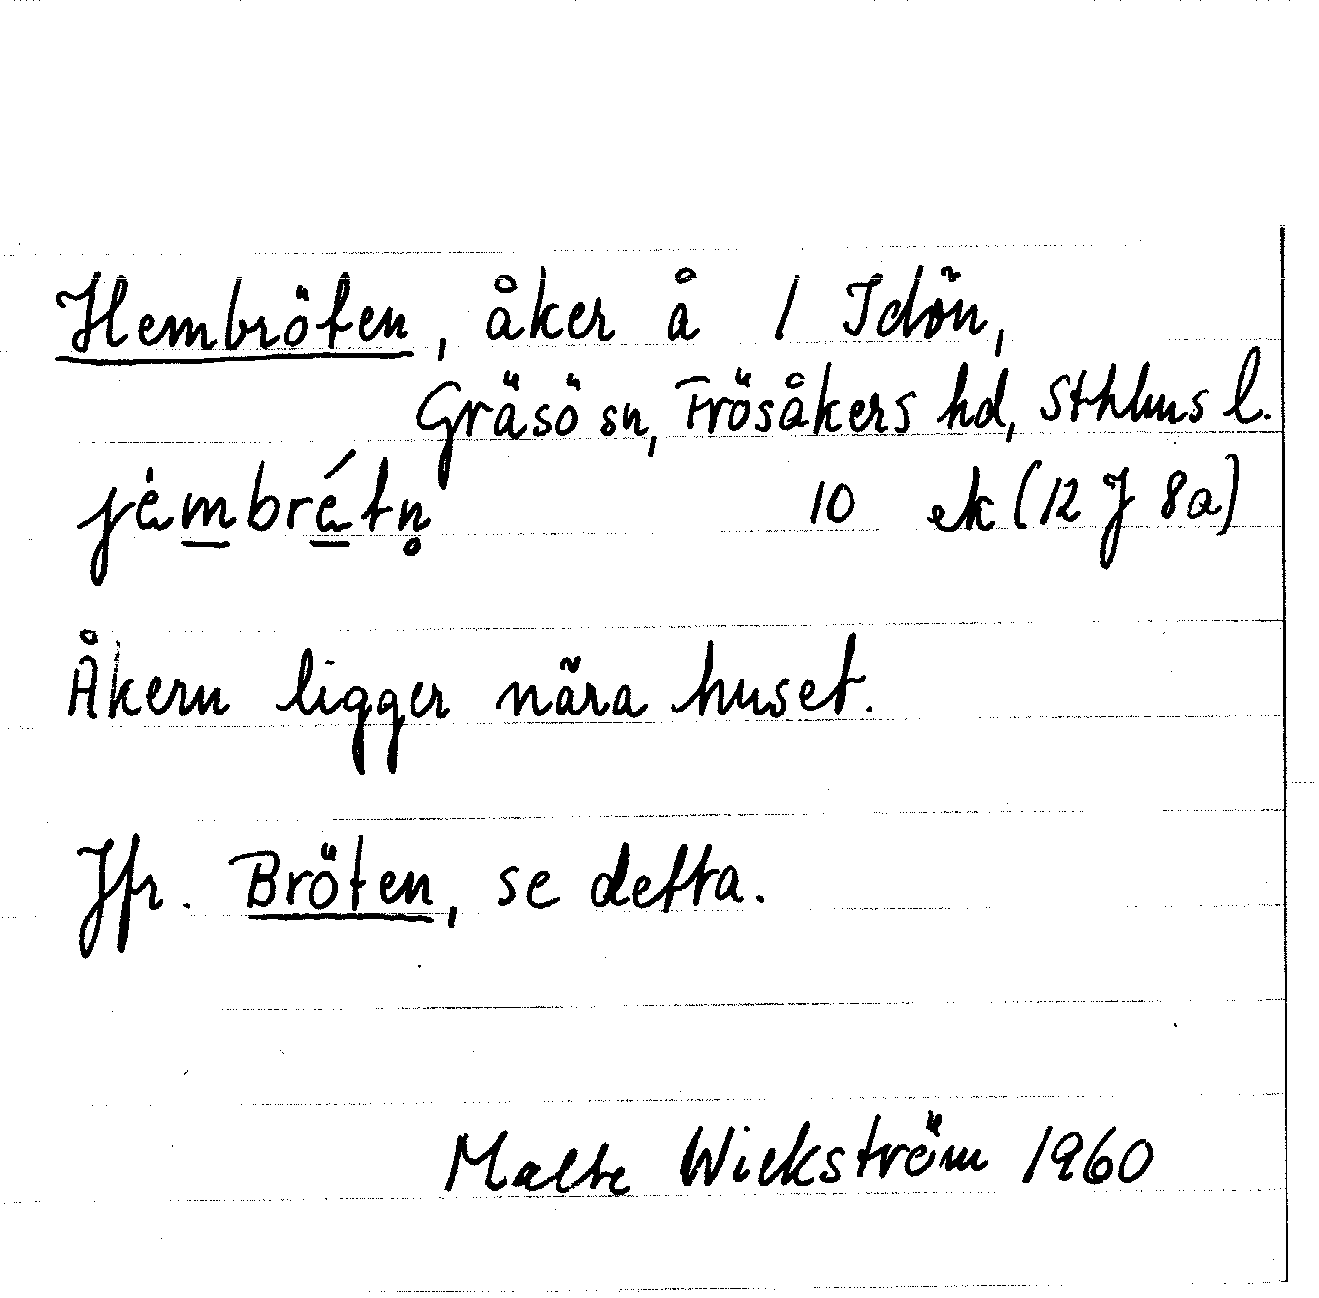 Hembröten, åker å 1 Idön,
Gräsö sn, Frösåkers hd, Sthlms l.
jèmbrétn̥ 10 ek (12 J 8a)
Åkern ligger nära huset.
Jfr. Bröten, se detta.
Malte Wickström 1960